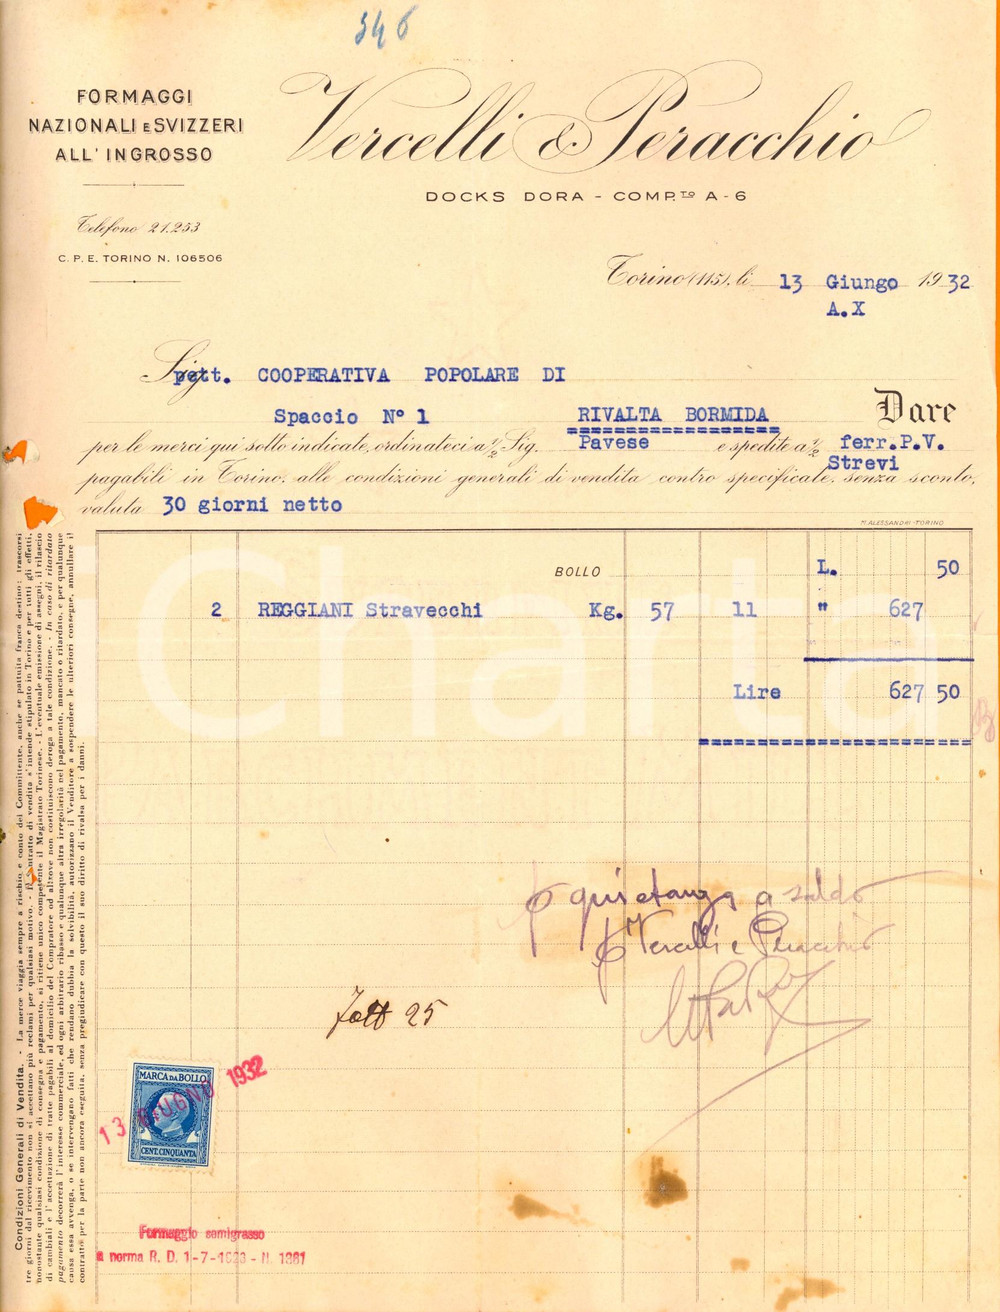 346
FORMAGGI
NAZIONALI E SVIZZERI
ALL' INGROSSO
Vercelli & Peracchio
DOCKS DORA - COMP.TO A - 6
Telefono 21.253
C. P. E. TORINO N. 106506
Torino (115), li 13 Giungo 1932
A.X
Sig
pett. COOPERATIVA POPOLARE DI
Spaccio N° 1 RIVALTA BORMIDA
Dare
per le merci qui sotto indicate, ordinateci a½ Sig. Pavese e spedite a½ ferr.P.V.
Strevi
pagabili in Torino, alle condizioni generali di vendita contro specificate, senza sconto,
valuta 30 giorni netto
M. ALESSANDRI - TORINO
BOLLO L. 50
2 REGGIANI Stravecchi Kg. 57 11 " 627
Lire 627 50
iCharta
p quietanza a saldo
p Vercelli e Peracchio
Fatt 25
MARCA DA BOLLO
CENT. CINQUANTA
13 GIUGNO 1932
Formaggio semigrasso
a norma R. D. 1-7-1923 - N. 1361
Condizioni Generali di Vendita. - La merce viaggia sempre a rischio e conto del Committente, anche se pattuita franca destino; trascorsi
tre giorni dal ricevimento non si accettano più reclami per qualsiasi motivo. - Il contratto di vendita s'intende stipulato in Torino e per tutti gli effetti,
nonostante qualsiasi condizione di consegna e pagamento, si ritiene unico competente il Magistrato Torinese. - L'eventuale emissione di assegni, il rilascio
di cambiali e l'accettazione di tratte pagabili al domicilio del Compratore od altrove non costituiscono deroga a tale condizione. - In caso di ritardato
pagamento decorrerà l'interesse commerciale, ed ogni arbitrario ribasso e qualunque altra irregolarità nel pagamento, mancato o ritardato, e per qualunque
causa essa avvenga, o se intervengano fatti che rendano dubbia la solvibilità, autorizzano il Venditore a sospendere le ulteriori consegne, annullare il
contratto per la parte non ancora eseguita, senza pregiudicare con questo il suo diritto di rivalsa per i danni.